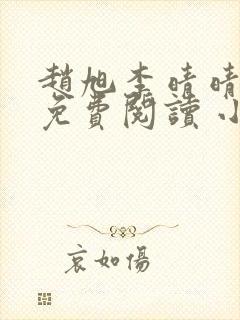 趙旭李晴晴
免費閱讀小
哀如傷